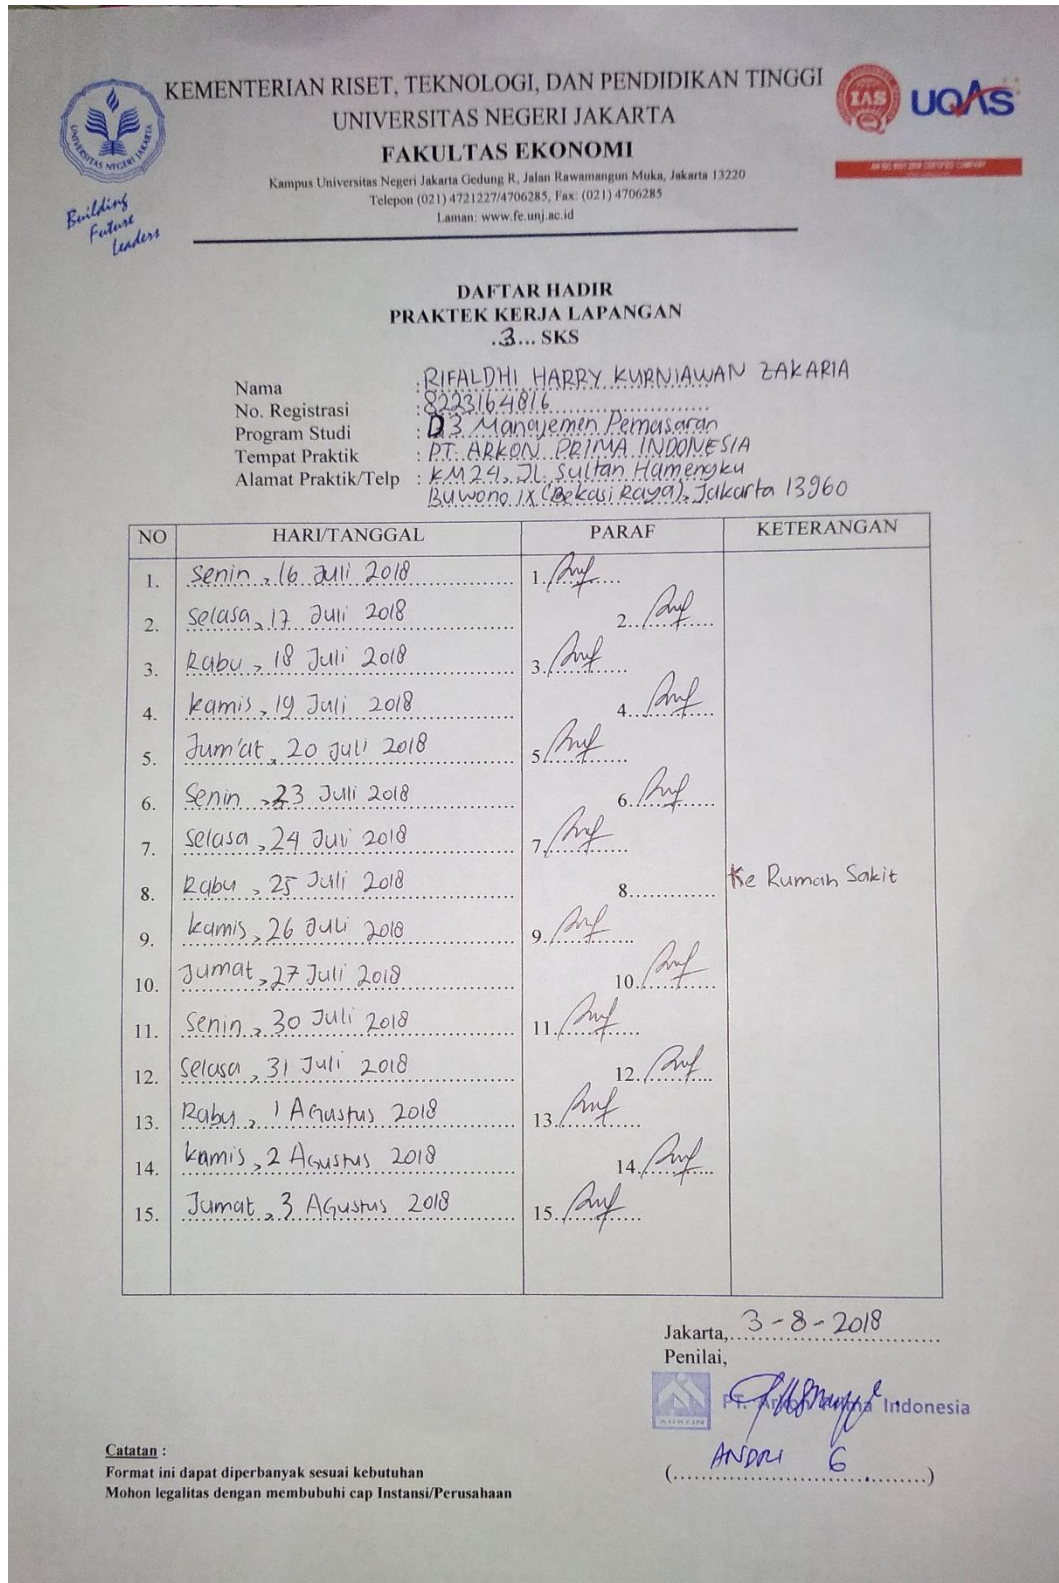 KEMENTERIAN RISET, TEKNOLOGI, DAN PENDIDIKAN TINGGI
UNIVERSITAS NEGERI JAKARTA
FAKULTAS EKONOMI
Kampus Universitas Negeri Jakarta Gedung R, Jalan Rawamangun Muka, Jakarta 13220
Telepon (021) 4721227/4706285, Fax: (021) 4706285
Laman: www.fe.unj.ac.id
UNIVERSITAS NEGERI JAKARTA
Building
Future
Leaders
IAS
UQAS
DAFTAR HADIR
PRAKTEK KERJA LAPANGAN
.3... SKS
Nama : RIFALDHI HARRY KURNIAWAN ZAKARIA
No. Registrasi : 8223164816
Program Studi : D3 Manajemen Pemasaran
Tempat Praktik : PT. ARKON PRIMA INDONESIA
Alamat Praktik/Telp : KM 24, Jl. Sultan Hamengku
Buwono IX (Bekasi Raya), Jakarta 13960
NO HARI/TANGGAL PARAF KETERANGAN
1. Senin, 16 Juli 2018 1.
2. Selasa, 17 Juli 2018 2.
3. Rabu, 18 Juli 2018 3.
4. Kamis, 19 Juli 2018 4.
5. Jum'at, 20 Juli 2018 5.
6. Senin, 23 Juli 2018 6.
7. Selasa, 24 Juli 2018 7.
8. Rabu, 25 Juli 2018 8. Ke Rumah Sakit
9. Kamis, 26 Juli 2018 9.
10. Jumat, 27 Juli 2018 10.
11. Senin, 30 Juli 2018 11.
12. Selasa, 31 Juli 2018 12.
13. Rabu, 1 Agustus 2018 13.
14. Kamis, 2 Agustus 2018 14.
15. Jumat, 3 Agustus 2018 15.
Jakarta, 3-8-2018
Penilai,
ARKON
PT. Arkon Prima Indonesia
(ANDRI G)
Catatan :
Format ini dapat diperbanyak sesuai kebutuhan
Mohon legalitas dengan membubuhi cap Instansi/Perusahaan